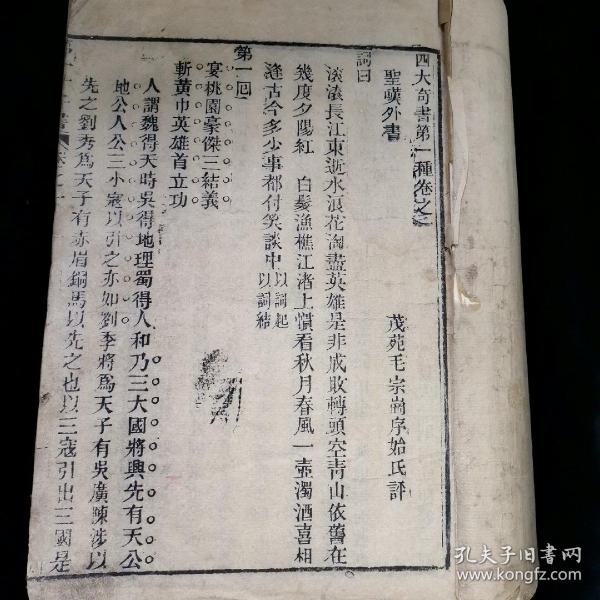 四大奇書第一種卷之一
聖嘆外書
茂苑毛宗崗序始氏評
詞曰
滾滾長江東逝水浪花淘盡英雄是非成敗轉頭空青山依舊在
幾度夕陽紅　白髮漁樵江渚上慣看秋月春風一壺濁酒喜相
逢古今多少事都付笑談中以詞起以詞結
第一回
宴桃園豪傑三結義
斬黃巾英雄首立功
人謂魏得天時吳得地理蜀得人和乃三大國將興先有天公
地公人公三小寇以引之亦如劉季將為天子有吳廣陳涉以
先之劉秀為天子有赤眉銅馬以先之也以三寇引出三國是
孔夫子旧書网
www.kongfz.com